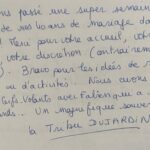 ons passé une super semain
de nos 20 ans de mariage da
Merci pour votre accueil, vot
votre discrétion (contrairem
). Bravo pour les idées de
ou d'activités. Nous avons
erfs Volants avec Fabien qui a
ands. Un magnifique souve
la Tribu DUJARDIN